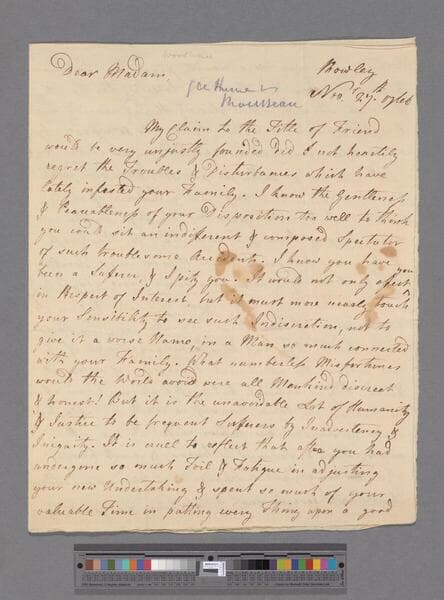 Dear Madam,
Rowley
Novr. 27th. 1766
see Hume &
Rousseau
My Claim to the Title of Friend
would be very unjustly founded did I not heartily
regret the Troubles & Disturbances which have
lately infested your Family. I know the Gentleness
& Peaceableness of your Disposition too well to think
you could sit an indifferent & composed Spectator
of such troublesome Accidents. I know you have
been a Sufferer, & I pity you. It would not only affect you
in Respect of Interest, but it must more nearly touch
your Sensibility to see such Indiscretion, not to
give it a worse Name, in a Man so much connected
with your Family. What numberless Misfortunes
would the World avoid were all Mankind discreet
& honest! But it is the unavoidable Lot of Humanity
& Justice to be frequent Sufferers by Inadvertency &
Iniquity. It is cruel to reflect that after you had
undergone so much Toil & Fatigue in adjusting
your new Undertaking & spent so much of your
valuable Time in putting every Thing upon a good